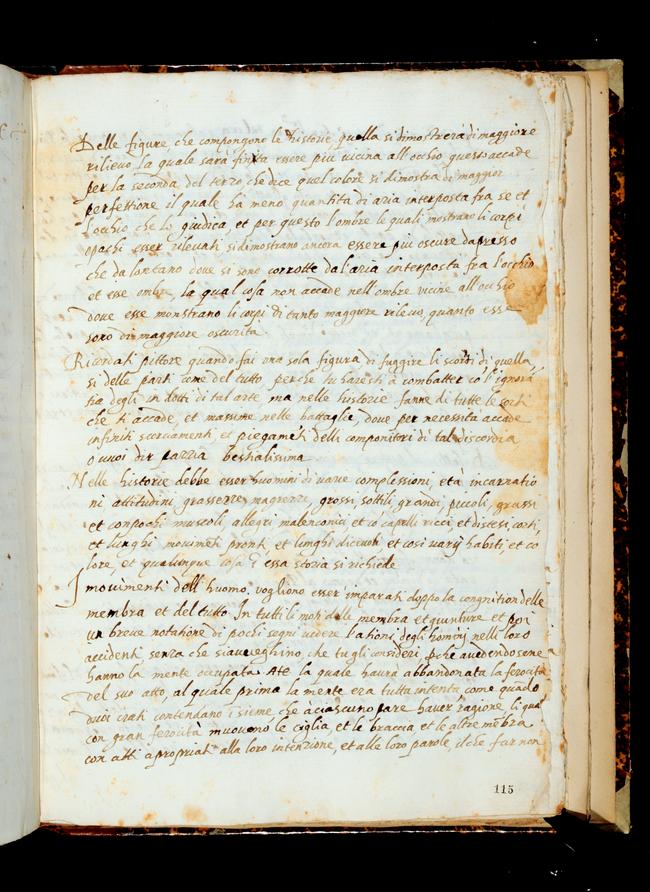 Delle figure, che compongono le historie quella si dimostrera di maggiore
rilievo la quale sarà finta essere piu vicina all'occhio questo accade
per la seconda del terzo che dice quel colore si dimostra di maggior
perfettione il quale ha meno quantita di aria interposta fra se et
l'occhio che lo giudica, et per questo l'ombre le quali mostrano li corpi
opachi esser rilevati si dimostrano ancora essere piu oscure dapresso
che da lontano dove si sono corrotte dal'aria interposta fra l'occhio
et esse ombre, la qual cosa non accade nell'ombre vicine all'occhio
dove esse monstrano li corpi di tanto maggiore rilevo, quanto esse
sono di maggiore oscurita.
Ricordati pittore quando fai una sola figura di fuggire li scorti di quella,
si delle parti come del tutto, perche tu haresti à combatter cō l'ignorā
tia degli in dotti di tal arte, ma nelle historie fanne di tutte le sorti
che ti accade, et massime nelle battaglie, dove per necessita accade
infiniti scorciamenti, et piegamēti delli componitori di tal discordia
o vuoi dir pazzia bestialissima
Nelle historie debbe esser huomini di varie complessioni, età, incarnatio
ni attitudini grassezze, magrezze, grossi, sottili, grandi, piccoli, grassi
et con pochi muscoli, allegri malenconici, et cō capelli ricci, et distesi, corti,
et lunghi movimēti pronti, et lunghi et cosi varij habiti, et co
lore, et qualunque cosa ī essa storia si richiede
I movimenti dell'huomo vogliono esser imparati doppo la congnition delle
membra et del tutto. In tutti li moti delle membra et giunture et poi
un breve notatione di pochi segni vedere l'ationi degli homini nelli loro
accidenti senza che si aveveghino, che tu gli consideri, pche avedendosene
hanno la mente occupata Ate la quale haurà abbandonata la ferocità
del suo atto, al quale prima la mente era tutta intenta come quādo
duoi irati contendano īsieme, che à ciascuno pare haver ragione, li quā
con gran ferocità muovono le ciglia, et le braccia, et le altre mēbra
con atti apropriati alla loro intenzione, et alle loro parole, il che far non
115